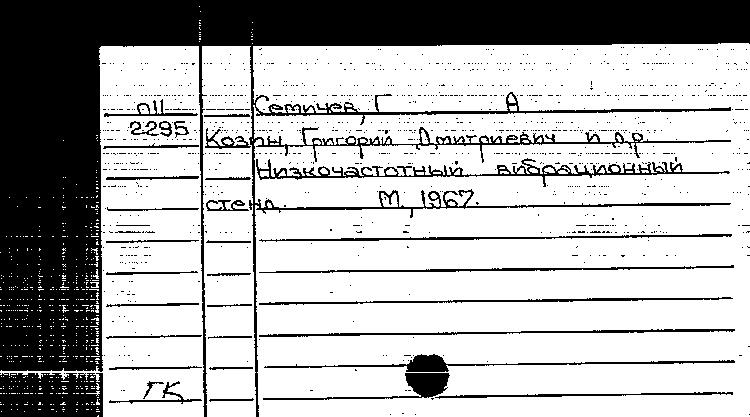 П11 Семичев, Г А
2295 Козлы, Григорий Дмитриевич и др
Низкочастотный вибрационный
стенд. М., 1967.
ГК